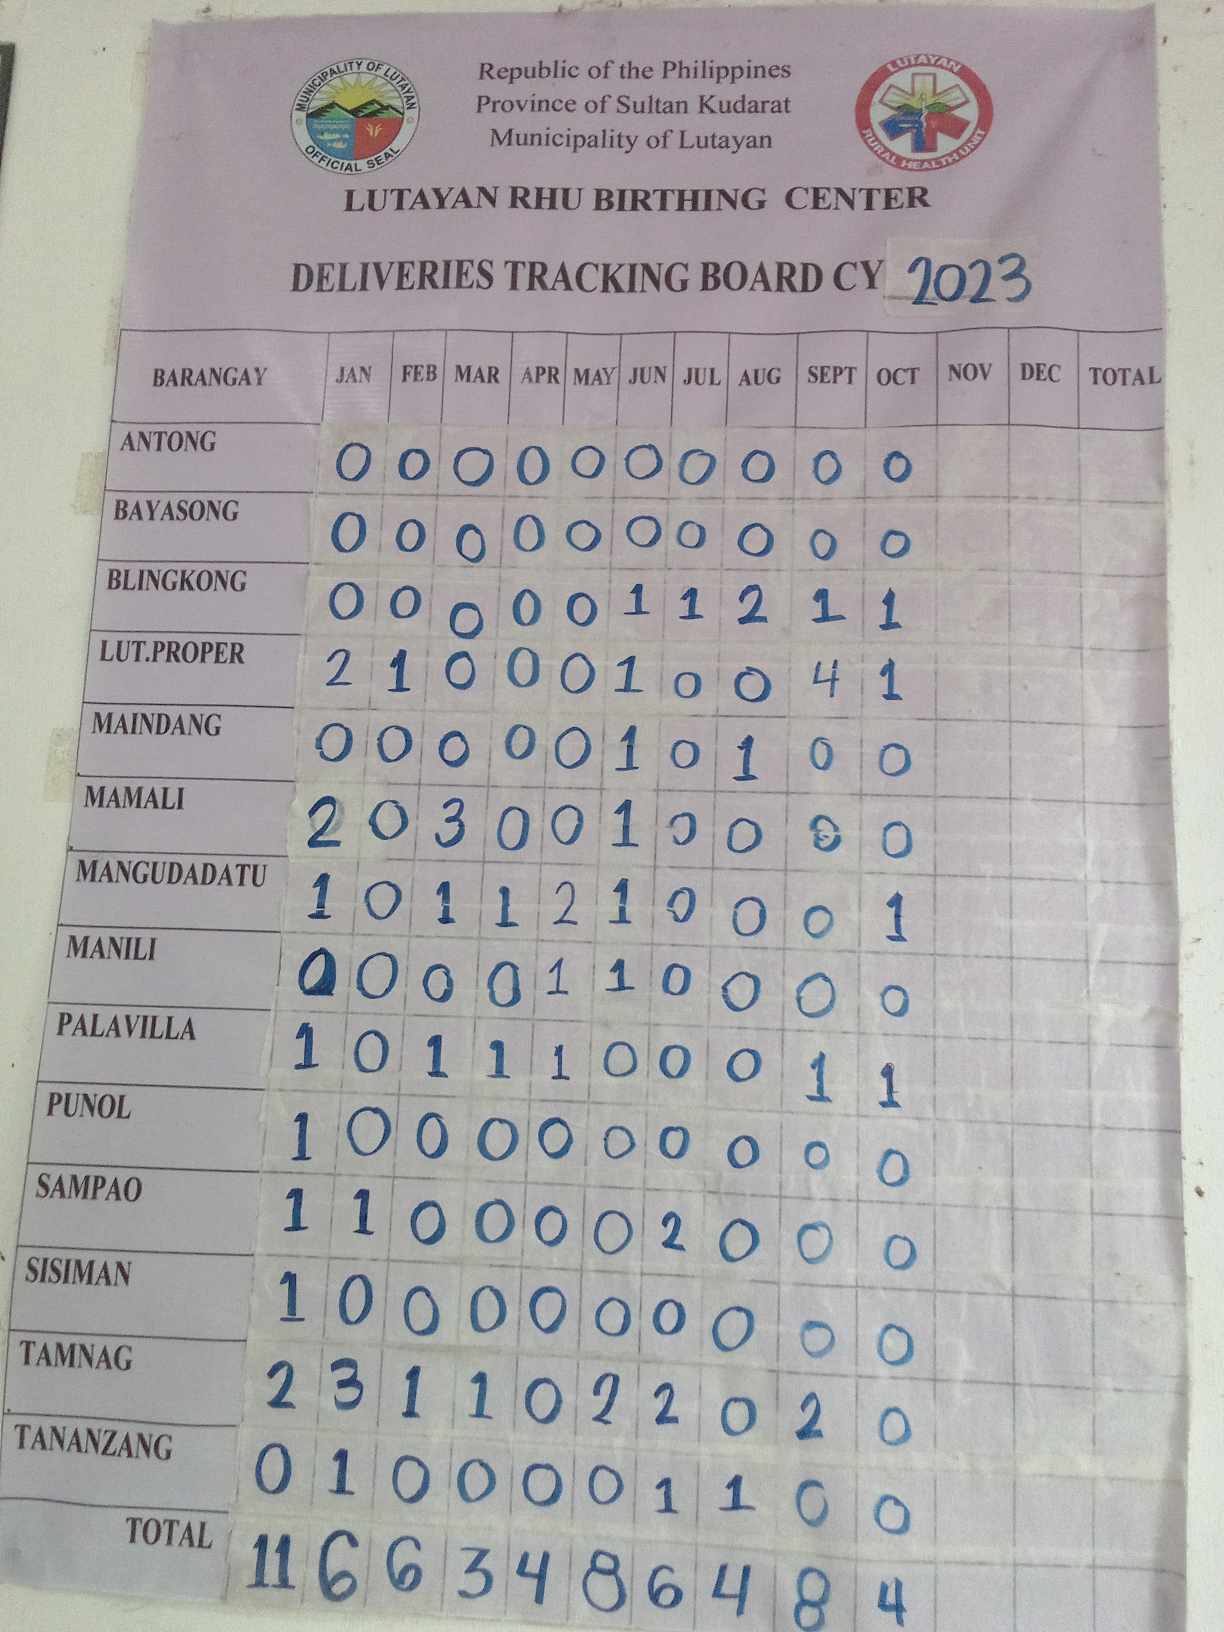 MUNICIPALITY OF LUTAYAN
OFFICIAL SEAL
Republic of the Philippines
Province of Sultan Kudarat
Municipality of Lutayan
LUTAYAN
RURAL HEALTH UNIT
LUTAYAN RHU BIRTHING CENTER
DELIVERIES TRACKING BOARD CY 2023
BARANGAY JAN FEB MAR APR MAY JUN JUL AUG SEPT OCT NOV DEC TOTAL
ANTONG 0 0 0 0 0 0 0 0 0 0
BAYASONG 0 0 0 0 0 0 0 0 0 0
BLINGKONG 0 0 0 0 0 1 1 2 1 1
LUT.PROPER 2 1 0 0 0 1 0 0 4 1
MAINDANG 0 0 0 0 0 1 0 1 0 0
MAMALI 2 0 3 0 0 1 0 0 0 0
MANGUDADATU 1 0 1 1 2 1 0 0 0 1
MANILI 0 0 0 0 1 1 0 0 0 0
PALAVILLA 1 0 1 1 1 0 0 0 1 1
PUNOL 1 0 0 0 0 0 0 0 0 0
SAMPAO 1 1 0 0 0 0 2 0 0 0
SISIMAN 1 0 0 0 0 0 0 0 0 0
TAMNAG 2 3 1 1 0 2 2 0 2 0
TANANZANG 0 1 0 0 0 0 1 1 0 0
TOTAL 11 6 6 3 4 8 6 4 8 4